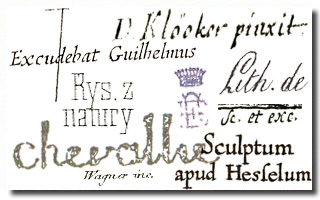 D. Klöcker pinxit.
Excudebat Guilhelmus
Lith. de
Rys. z
natury
Sc. et exc.
chevallie
Sculptum
apud Hesselum
Wagner inc.